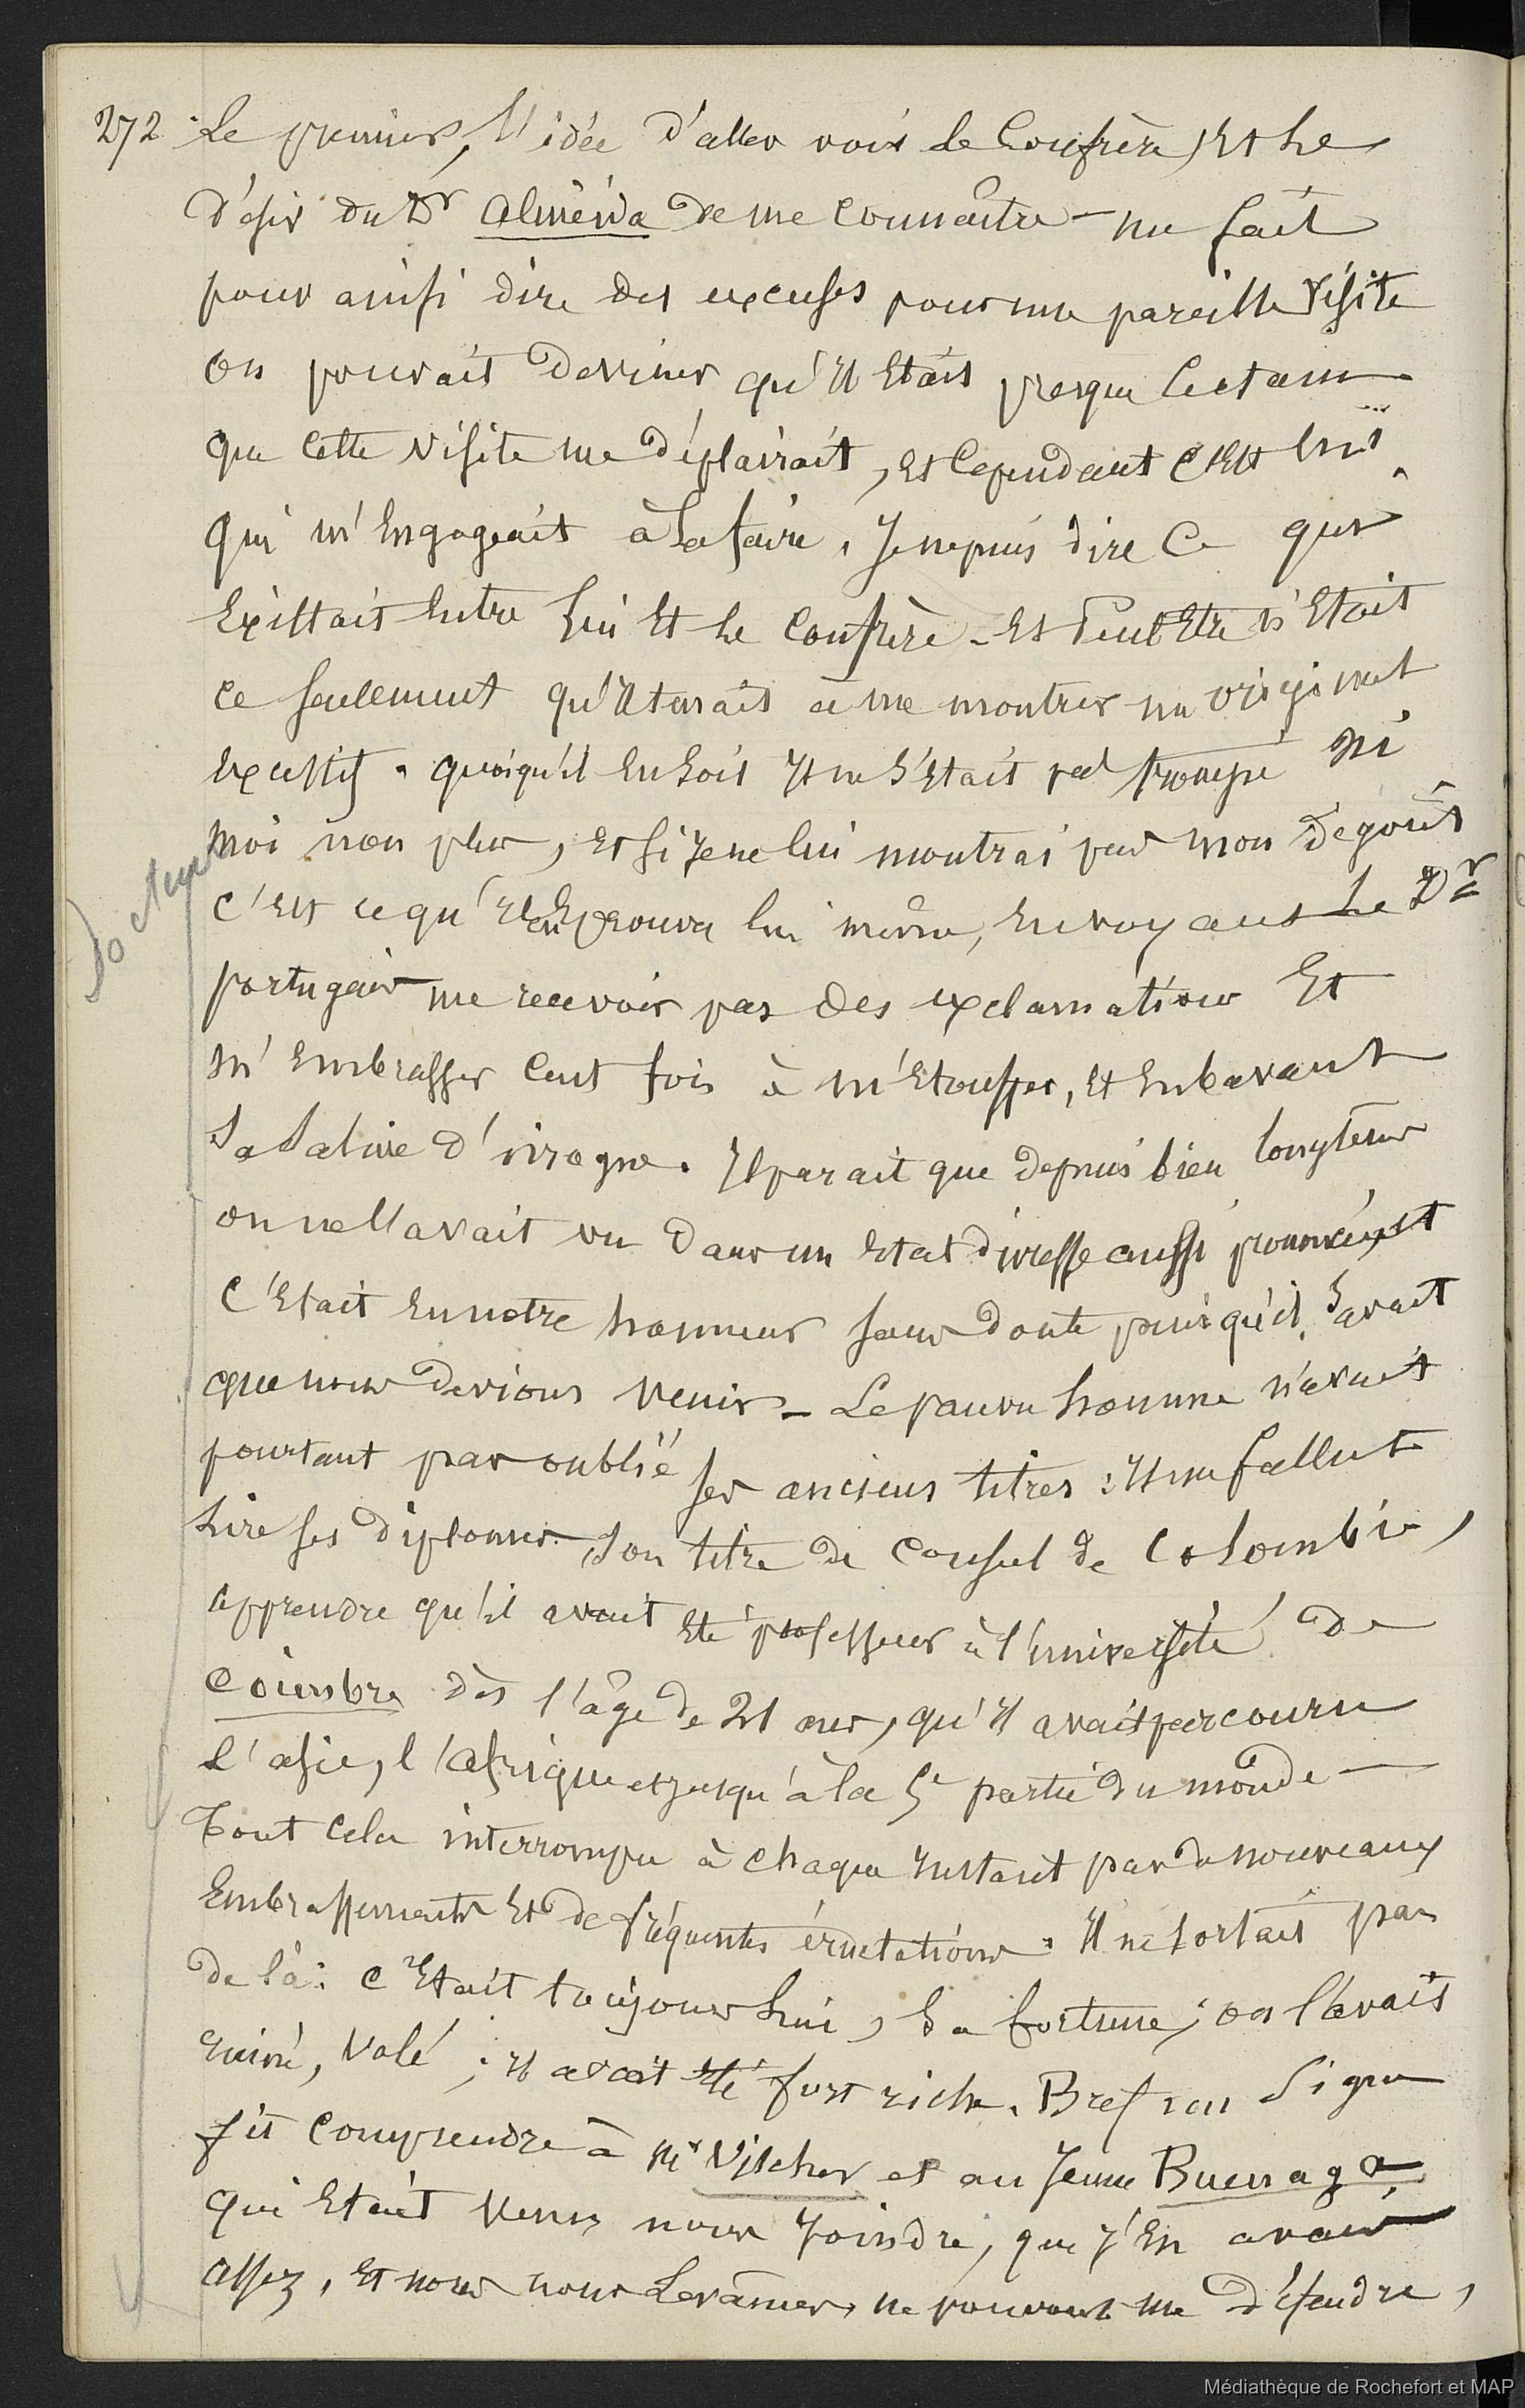 272 Le premier, l'idée d'aller voir le Confrère, Et Le
désir du Dr Alméïda de me Connaître – me fait
pour ainsi dire des excuses pour une pareille visite
On pouvait deviner qu'Il Etait presque Certain
que Cette visite me déplairait, Et Cependant C'Est lui
qui m'Engageait à La faire. Je ne puis dire Ce qui
Existait Entre Lui Et Le Confrère – Et Peut Etre n'Etait
ce seulement qu'Il tenait à me montrer un original
Excessif. quoiqu'il En Soit Il ne s'était pas trompé ni
moi non plus, Et si Je ne lui montrai pas mon dégoût
C'Est ce qu'Il en Eprouva lui même, En voyant Le Dr
Docteur
portugais me recevoir par des exclamations Et
m'Embrasser Cent fois à m'Etouffer, Et En bavant
Sa Salive d'ivrogne. Il parait que depuis bien longtems
on ne l'avait vu dans un Etat d'ivresse aussi prononcé, Et
C'Etait En notre honneur sans doute puisqu'il Savait
que nous devions venir – Le pauvre homme n'avait
pourtant pas oublié ses anciens titres : Il me fallut
Lire ses diplomes, Son titre de Consul de Colombie,
apprendre qu'il avait Eté professeur à l'université de
Coimbre dès l'âge de 21 ans, qu'Il avait parcouru
L'asie, l'afrique et jusqu'à la 5e partie du monde –
Tout Cela interrompu à Chaque Instant par de nouveaux
Embrassements Et de fréquentes éructations. Il ne Sortait pas
de là : C'Etait toujours Lui, Sa fortune ; on l'avait
ruiné, Volé ; Il avait Eté fort riche. Bref, un Signe
fit Comprendre à Mr Vilcher et au Jeune Buenaga
qui Etait Venu nous Joindre, que J'En avais
assez, Et nous nous Levâmes. ne pouvant me défendre,
Médiathèque de Rochefort et MAP